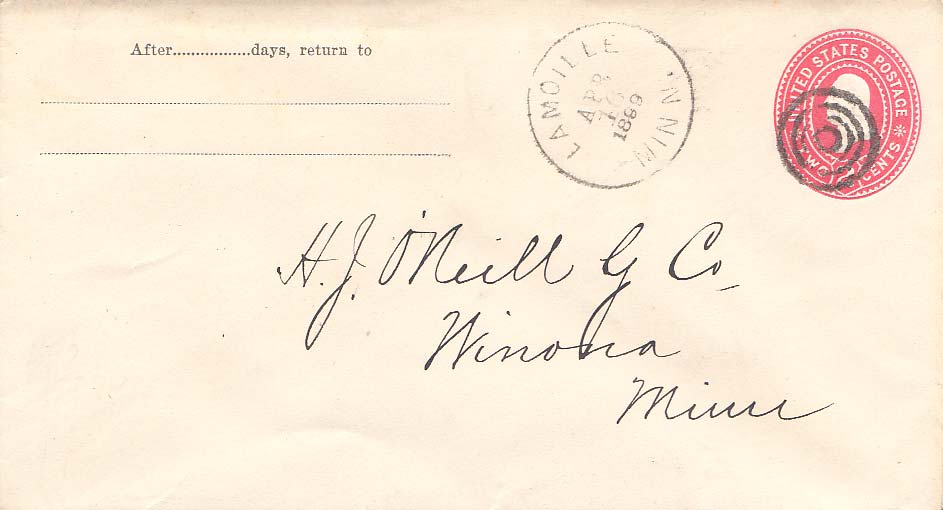 After.................days, return to
LAMOILLE MINN.
APR
1899
UNITED STATES POSTAGE
TWO CENTS
H. J. O'Neill G Co
Winona
Minn